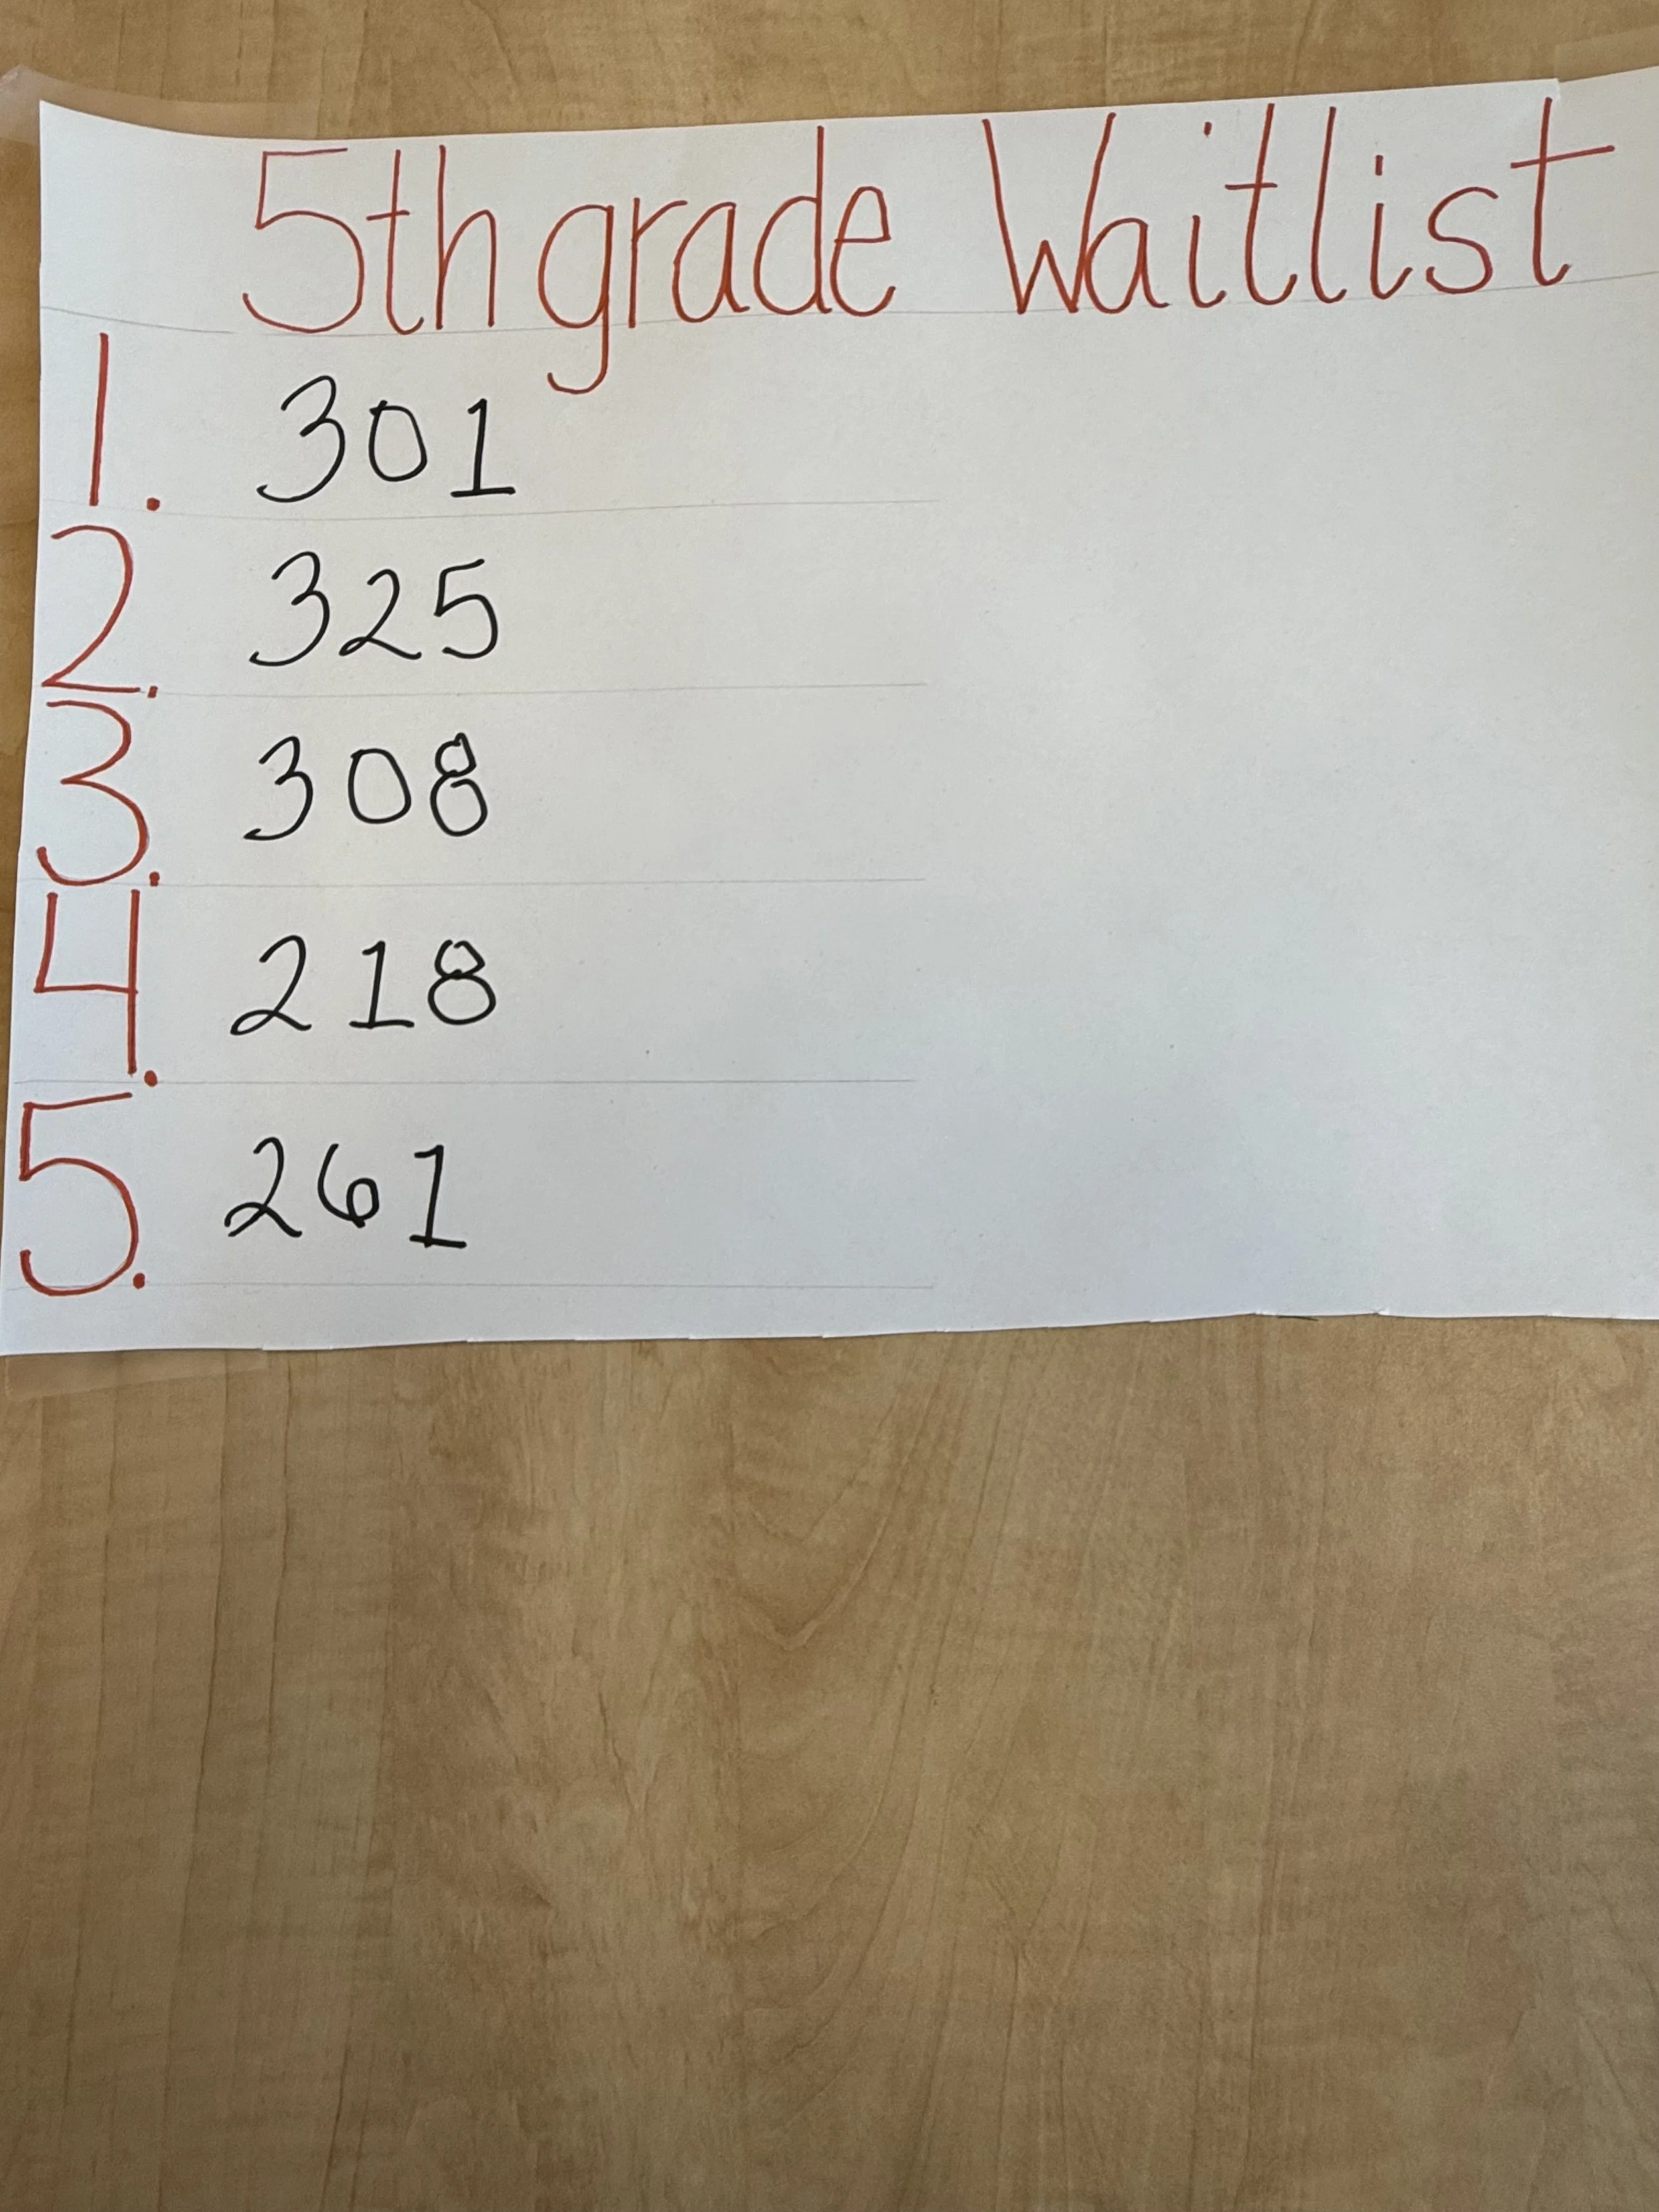 5th grade Waitlist
1. 301
2. 325
3. 308
4. 218
5. 261